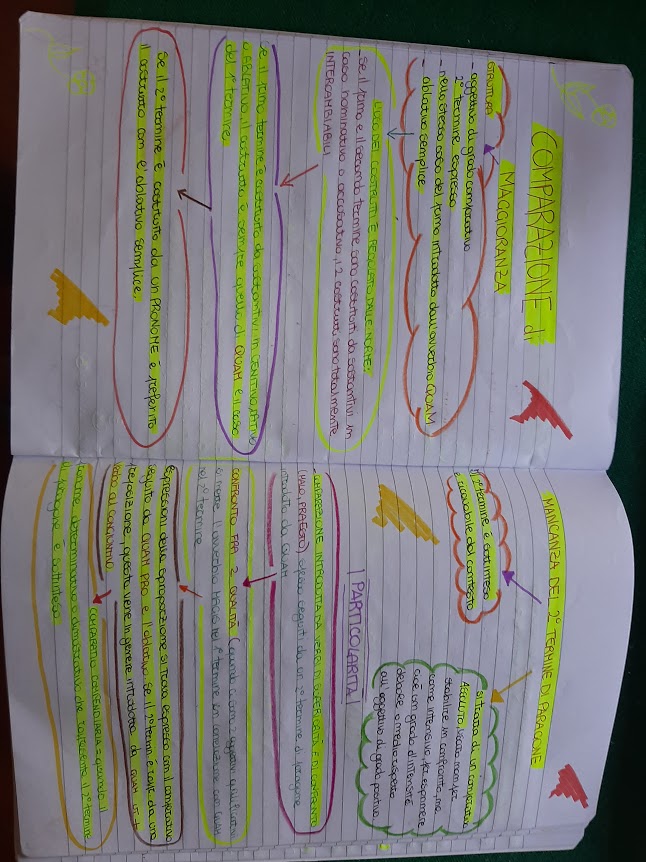 COMPARAZIONE di
MAGGIORANZA
STRUTTURA
- aggettivo di grado comparativo
2° termine espresso
- nello stesso caso del primo introdotto dall'avverbio QUAM
- ablativo semplice
L'USO DEI COSTRUTTI È REGOLATO DALLE NORME:
- Se il primo e il secondo termine sono costituiti da sostantivi in
caso nominativo o accusativo, i 2 costrutti sono totalmente
INTERCAMBIABILI
se il primo termine è costituito da sostantivi in GENITIVO, DATIVO
o ABLATIVO, il costrutto è sempre quello di QUAM e il caso
del 1° termine
Se il 2° termine è costituito da un PRONOME è preferito
il costrutto con l'ablativo semplice.
MANCANZA DEL 2° TERMINE DI PARAGONE
Il 2° termine è sottinteso
e ricavabile dal contesto
si tratta di un comparativo
ASSOLUTO, usato non per
stabilire un confronto, ma
come intensivo, per esprimere
cioè un grado d'intensità
rispetto
all'aggettivo di grado positivo
PARTICOLARITÀ
- COMPARAZIONE INTRODOTTA DA VERBI DI E DI CONFRONTO
(MALO, PRAESTO), spesso seguiti da un 2° termine di paragone
introdotto da QUAM
CONFRONTO FRA 2 QUALITÀ (quando ci sono 2 aggettivi qualificativi
si mette l'avverbio MAGIS nel 1° termine in correlazione con QUAM
nel 2° termine
espressioni della sproporzione si trova espresso con il comparativo
seguito da QUAM PRO e l'ablativo. se il 2° termine è dato da una
proposizione, questa viene in genere introdotta da QUAM UT
COMPARATIO COMPENDIARIA: quando il
termine determinativo o dimostrativo ma 2° termine
di paragone è sottinteso